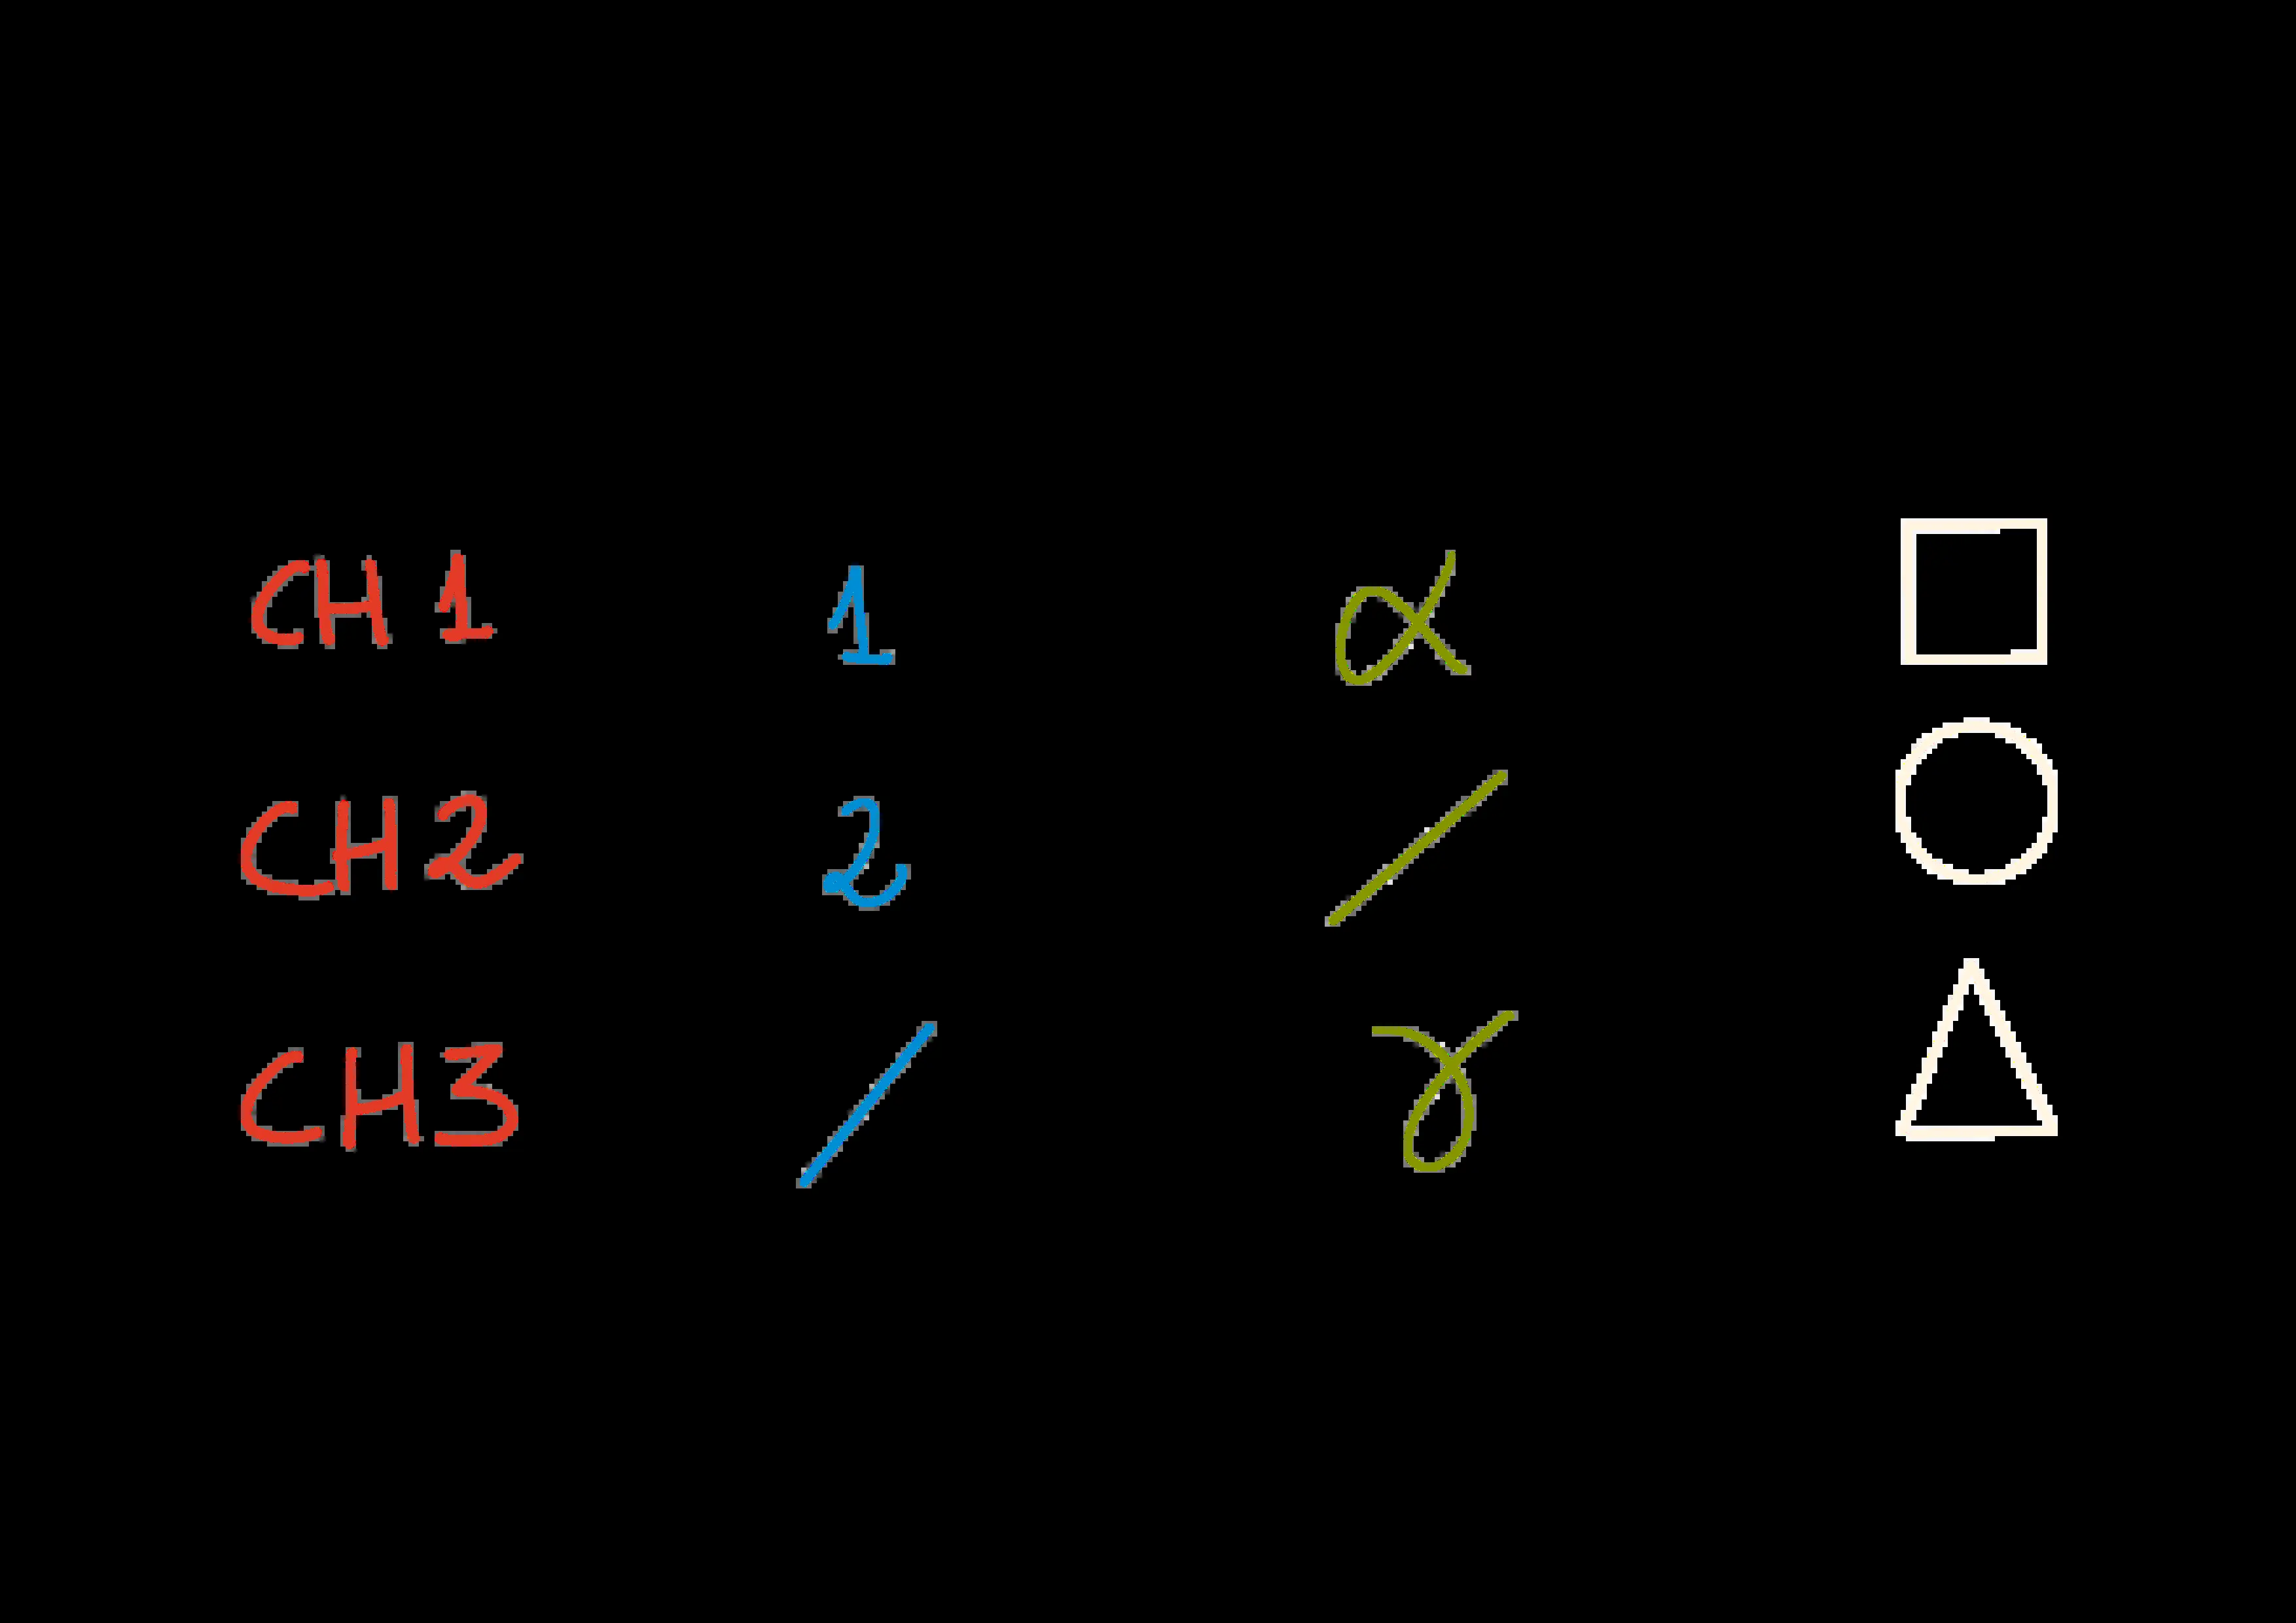 CH1 1 α
CH2 2 /
CH3 / γ